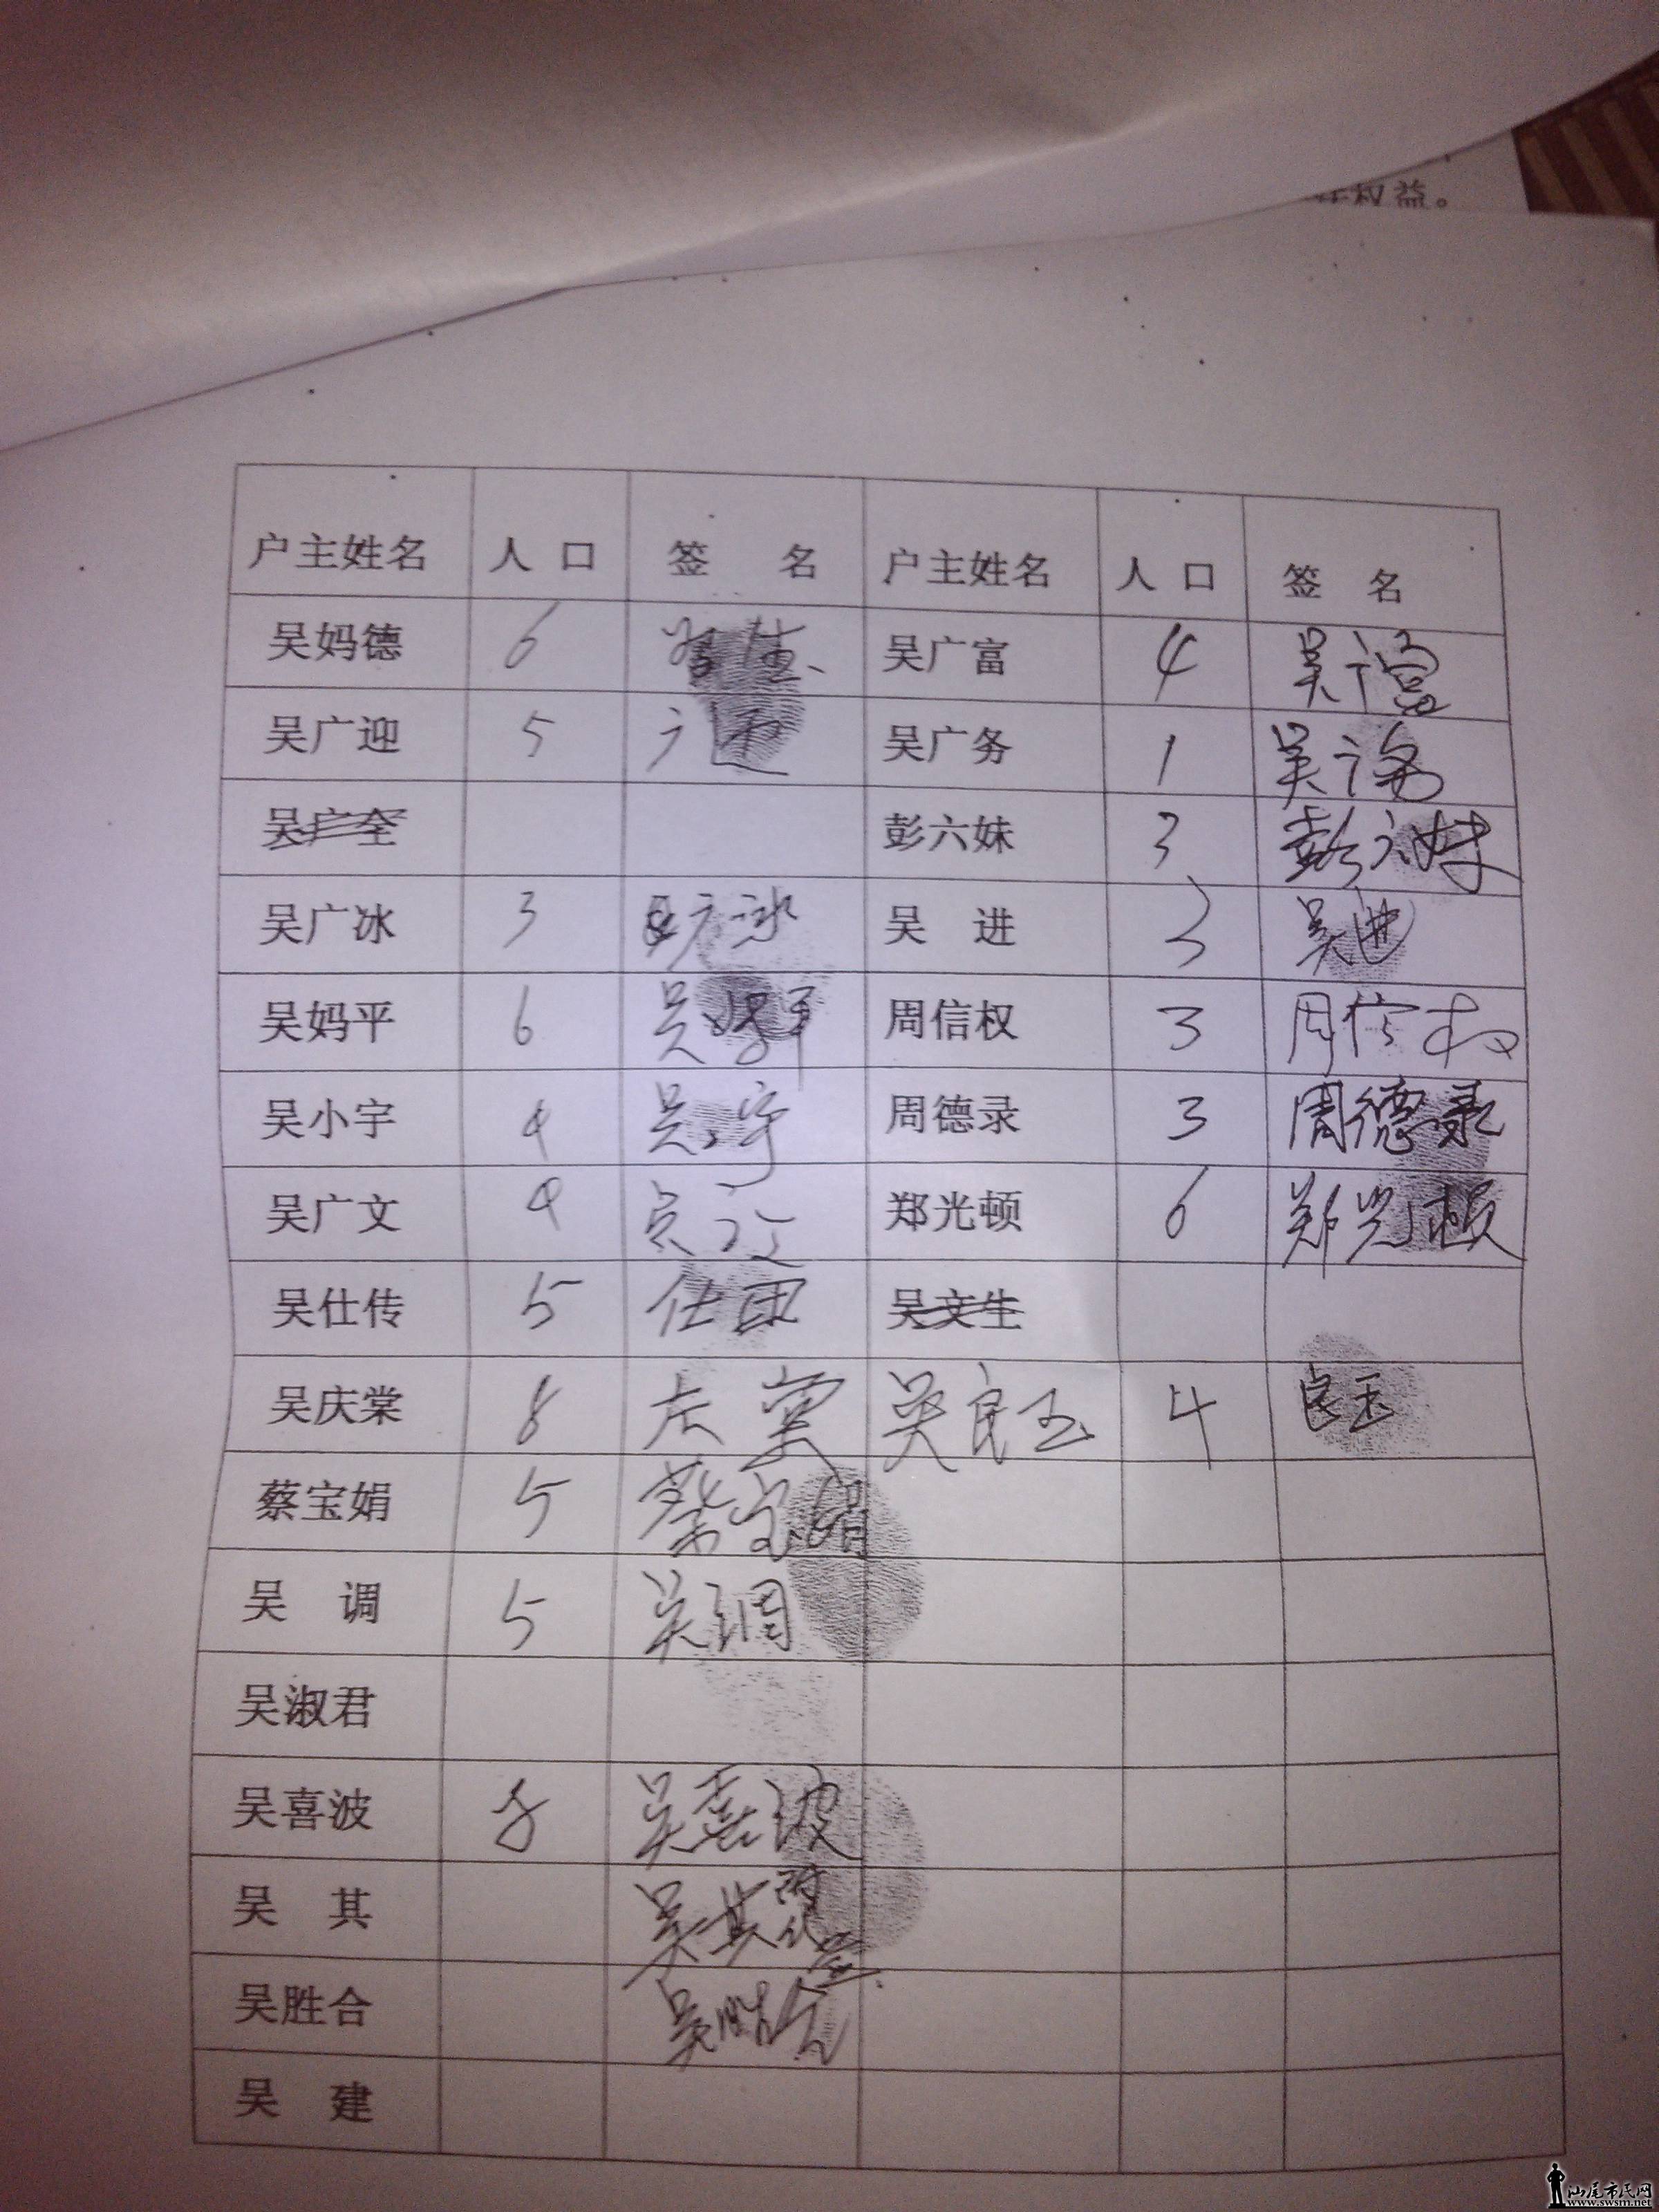 权益。
户主姓名 人口 签名 户主姓名 人口 签名
吴妈德 6 吴广富 4 吴广富
吴广迎 5 广迎 吴广务 1 吴广务
吴广全 彭六妹 3 彭六妹
吴广冰 3 吴广冰 吴进 3 吴进
吴妈平 6 吴妈平 周信权 3 周信权
吴小宇 4 吴小宇 周德录 3 周德录
吴广文 4 吴广文 郑光顿 6 郑光顿
吴仕传 5 仕田 吴文生
吴庆棠 8 庆棠 吴良玉 4 良玉
蔡宝娟 5 蔡宝娟
吴调 5 吴调
吴淑君
吴喜波 8 吴喜波
吴其 吴其
吴胜合 吴胜合
吴建
汕尾市民网
www.swsm.net